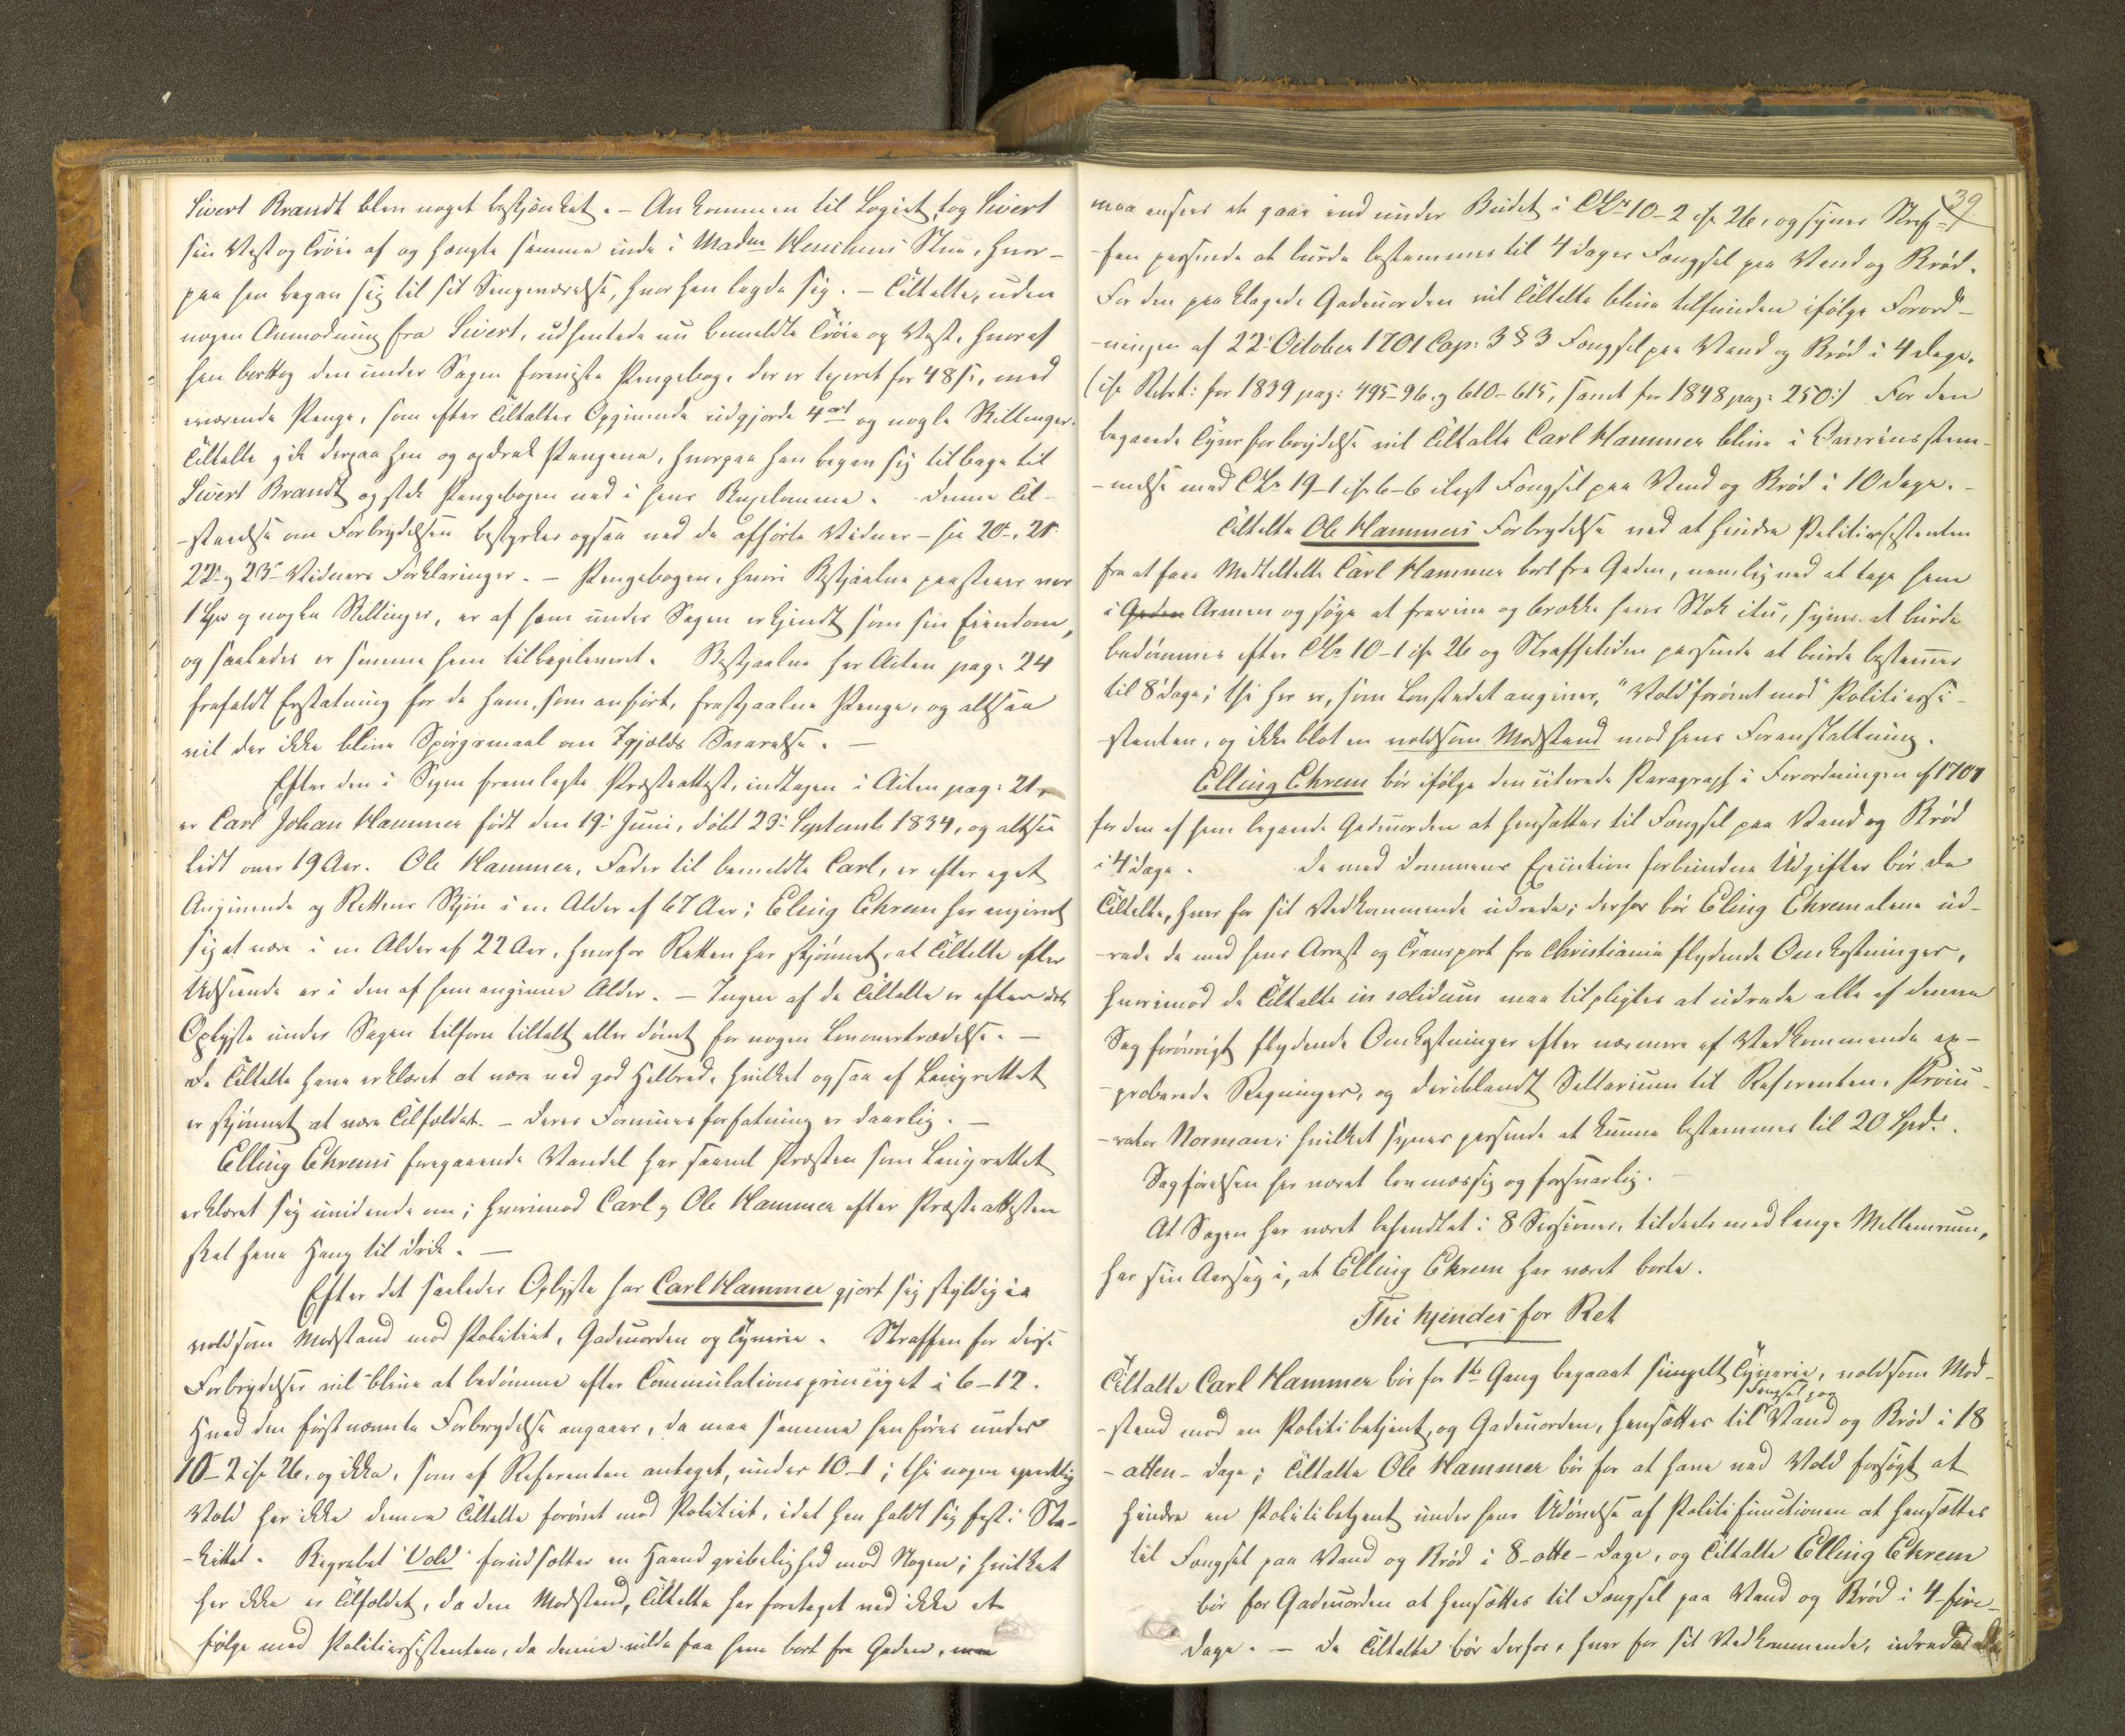 Sivert Brandt blev noget beskjænket. – Ankommen til Logiet, tog Sivert
sin Vest og Trøie af og hængte samme inde i Madm Henchens Stue, hvor-
paa han begav sig til sit Sengeværelse, hvor han lagde sig. – Tiltalte, uden
nogen Anmodning fra Sivert, udhentede nu bemeldte Trøie og Vest, hvoraf
han borttog den under Sagen foreviste Pengebog, der er taxeret for 48 s, med
værende Penge, som efter Tiltaltes Opgivende udgjorde 4 ort og nogle Skillinger.
Tiltalte gik derpaa hen og opdrak Pengene, hvorpaa han begav sig tilbage til
Sivert Brandt og stak Pengebogen ned i hans Buxelomme. Denne Til-
-staaelse om Forbrydelsen bestyrkes ogsaa ved de afhørte Vidner – see 20de, 21de
22de og 23de Vidners Forklaringer. – Pengebogen, hvori Bestjaalne paastaaer var
1 Spd og nogle Skillinger, er af ham under Sagen erkjendt som sin Eiendom,
og saaledes er samme ham tilbageleveret. Bestjaalne har Acten pag. 24
frafaldt Erstatning for de ham, som anført, frastjaalne Penge, og altsaa
vil der ikke blive Spørgsmaal om Igjelds Svarelse. –
Efter den i Sagen fremlagte Præsteattest, indtagen i Acten pag: 21,
er Carl Johan Hammer født den 19de Juni, døbt 23de Septemb 1834, og altsaa
lidt over 19 Aar. Ole Hammer, Fader til bemeldte Carl, er efter eget
Angivende og Rettens Skjøn i en Alder af 67 Aar; Elling Ekrem har angivet
sig at være i en Alder af 22 Aar, hvorfor Retten har skjønnet, at Tiltalte efter
Udseende er i den af ham angivne Alder. – Ingen af de Tiltalte er efter det
Oplyste under Sagen tilforn tiltalt eller dømt for nogen Lovovertrædelse. –
De Tiltalte have erklæret at være ved god Helbred, hvilket ogsaa af Laugrettet
er skjønnet at være Tilfældet. – Deres Formuesforfatning er daarlig. –
Elling Ekrems foregaaende Vandel har saavel Præsten som Laugrettet
erklæret sig uvidende om; hvorimod Carl og Ole Hammer efter Præsteattesten
skal have Hang til Drik. –
Efter det saaledes Oplyste har Carl Hammer gjort sig skyldig i
voldsom Modstand mod Politiet, Gadeuorden og Tyverie. Straffen for disse
Forbrydelser vil blive at bedømme efter Cumulationsprincipet i 6–12.
Hvad den førstnævnte Forbrydelse angaaer, da maa samme henføres under
10–2 cfr 26, og ikke, som af Referenten antaget, under 10–1; thi nogen egentlig
Vold har ikke denne Tiltalte forøvet mod Politiet, idet han holdt sig fast i Sta-
-kittet. Begrebet "Vold" forudsætter en Haandgribelighed mod Nogen; hvilket
her ikke er Tilfældet, da den Modstand, Tiltalte har foretaget ved ikke at
følge med Politiassistenten, da denne vilde faa ham bort fra Gaden,
39
maa ansees at gaae ind under Budet i CLn 10–2 cfr 26, og synes Straf-
-fen passende at burde bestemmes til 4 Dages Fængsel paa Vand og Brød.
For den paaklagede Gadeuorden vil Tiltalte blive tilfunden ifølge Forord-
-ningen af 22de October 1701 Cap: 3 § 3 Fængsel paa Vand og Brød i 4 Dage.
(cfr Retst: for 1839 pag: 495–96. og 610–615, samt for 1848 pag: 250.) For den
begaaede Tyvsforbrydelse vil Tiltalte Carl Hammer blive i Overensstem-
-melse med CLn 19–1 cfr 6–6 ilagt Fængsel paa Vand og Brød i 10 Dage. –
Tiltalte Ole Hammers Forbrydelse ved at hindre Politiassistenten
fra at faae Medtiltalte Carl Hammer bort fra Gaden, nemlig ved at tage ham
i Gaden Armen og søge at fravrive og brække hans Stok itu, synes at burde
bedømmes efter CLn 10–1 cfr 26 og Straffetiden passende at burde bestemmes
til 8 Dage; thi her er, som Lovstedet angiver, "Vold" forøvet mod Politiassi-
-stenten, og ikke blot en voldsom Modstand mod hans Foranstaltning.
Elling Ekrem bør ifølge den citerede Paragraph i Forordningen af 1701
for den af ham begaaede Gadeuorden at hensættes til Fængsel paa Vand og Brød
i 4 Dage. De med Dommens Execution forbundne Udgifter bør de
Tiltalte, hver for sit Vedkommende udrede; derfor bør Elling Ekrem alene ud-
-rede de med hans Arrest og Transport fra Christiania flydende Omkostninger,
hvorimod de Tiltalte in solidum maa tilpligtes at udrede alle af denne
Sag forøvrigt flydende Omkostninger efter nærmere af Vedkommende ap-
-proberede Regninger, og deriblandt Sallarium til Referenten, Procu-
-rator Norman; hvilket synes passende at kunne bestemmes til 20 Spd.
Sagførelsen har været lovmæssig og forsvarlig. –
At Sagen har været behandlet i 8 Sessioner, tildeels med lange Mellemrum,
har sin Aarsag i, at Elling Ekrem har været borte.
Thi kjendes for Ret
Tiltalte Carl Hammer bør for 1ste Gang begaaet simpelt Tyverie, voldsom Mod-
Fængsel paa
-stand mod en Politibetjent, og Gadeuorden, hensættes til Vand og Brød i 18
-atten- Dage; Tiltalte Ole Hammer bør for at have ved Vold forsøgt at
hindre en Politibetjent under hans Udøvelse af Politifunctionen at hensættes
til Fængsel paa Vand og Brød i 8 -otte- Dage, og Tiltalte Elling Ekrem
bør for Gadeuorden at hensættes til Fængsel paa Vand og Brød i 4 -fire-
Dage. – De Tiltalte bør derfor, hver for sit Vedkommende, udrede